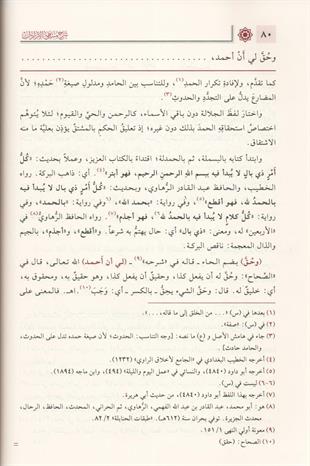 ٨٠
وحُقَّ لي أن أحمد، . . . . . . . . . . . . . . . . . . . . . . . . . . . . . .
كما تقدَّم، ولإفادةِ تكرار الحمدِ(١)، وللتناسب بين الحامد ومدلول صيغةِ(٢) حَمْدِه؛ لأنَّ
المضارعَ يدلُّ على التجدُّدِ والحدوثِ(٣).
واختارَ لفظَ الجلالة دون باقي الأسماء، كالرحمن والحيِّ والقيوم؛ لئلا يُتوهَّم
اختصاصُ استحقاقِهِ الحمدَ بذلك دون غيره؛ إذ تعليقُ الحكمِ بالمشتقِّ يؤذِن بعِلِّيَّة ما منه
الاشتقاق.
وابتدأ كتابه بالبسملة، ثم بالحمدلة؛ اقتداءً بالكتاب العزيز، وعملاً بحديث: «كُلُّ
أمْرٍ ذي بالٍ لا يُبدأ فيه ببسم الله الرحمن الرحيم، فهو أبتر»(٤). أي: ذاهب البركة. رواه
الخطيب، والحافظ عبد القادر الرُّهاوي، وبحديث: «كلُّ أمْرٍ ذي بالٍ لا يُبدأُ فيه
بالحمدُ لله، فهو أقطع»(٥)، وفي رواية: «بحمد الله»، (٦وفي رواية: «بالحمد»، وفي
رواية: كُلُّ كلامٍ لا يُبدأُ فيه بالحمدُ لله٦)، فهو أجذم»(٧). رواه الحافظ الرُّهاويُّ(٨) في
«الأربعين» له، ومعنى: «ذي بال» أي: حال يهتمُّ به شرعاً. و«أقطع»، و«أجذم»، بالجيم
والذال المعجمة: ناقص البركة.
(وحُقَّ) بضم الحاء ـ قاله في «شرحه»(٩) ـ (لي أن أحمد) الله تعالى، قال في
«الصِّحاح»: وحُقَّ له أن يفعل كذا، وحقيقٌ أن يفعل كذا، وهو حقيقٌ به، ومحقوق به،
أي: خليقٌ له. قال: وحَقَّ الشيء يحِقُّ ـ بالكسر ـ أي: وَجَبَ(١٠). اهـ. فالمعنى على
(١) بعدها في (س): «... من الخلق إلى ما قاله...».
(٢) في (س): «صفة».
(٣) جاء في هامش الأصل و(ع) ما نصه: [وجه التناسب: الحدوث؛ لأن صيغة حمده تدل على الحدوث،
والحامد حادث].
(٤) أخرجه الخطيب البغدادي في «الجامع لأخلاق الراوي» (١٢٣٢)
(٥) أخرجه أبو داود (٤٨٤٠)، والنسائي في «عمل اليوم والليلة» (٤٩٤)، وابن ماجه (١٨٩٤).
(٦-٦) ليست في (س).
(٧) أخرجه بهذا اللفظ أبو داود (٤٨٤٠)، من حديث أبي هريرة.
(٨) هو: أبو محمد، عبد القادر بن عبد الله الفهمي، الرُّهاوي، ثم الحراني، المحدث، الحافظ، الرحال،
محدث الجزيرة. توفي بحران سنة (٦١٢هـ). «طبقات الحنابلة» ٢/ ٨٢.
(٩) معونة أولي النهى ١/ ١٥١.
(١٠) الصحاح: (حقق)
=